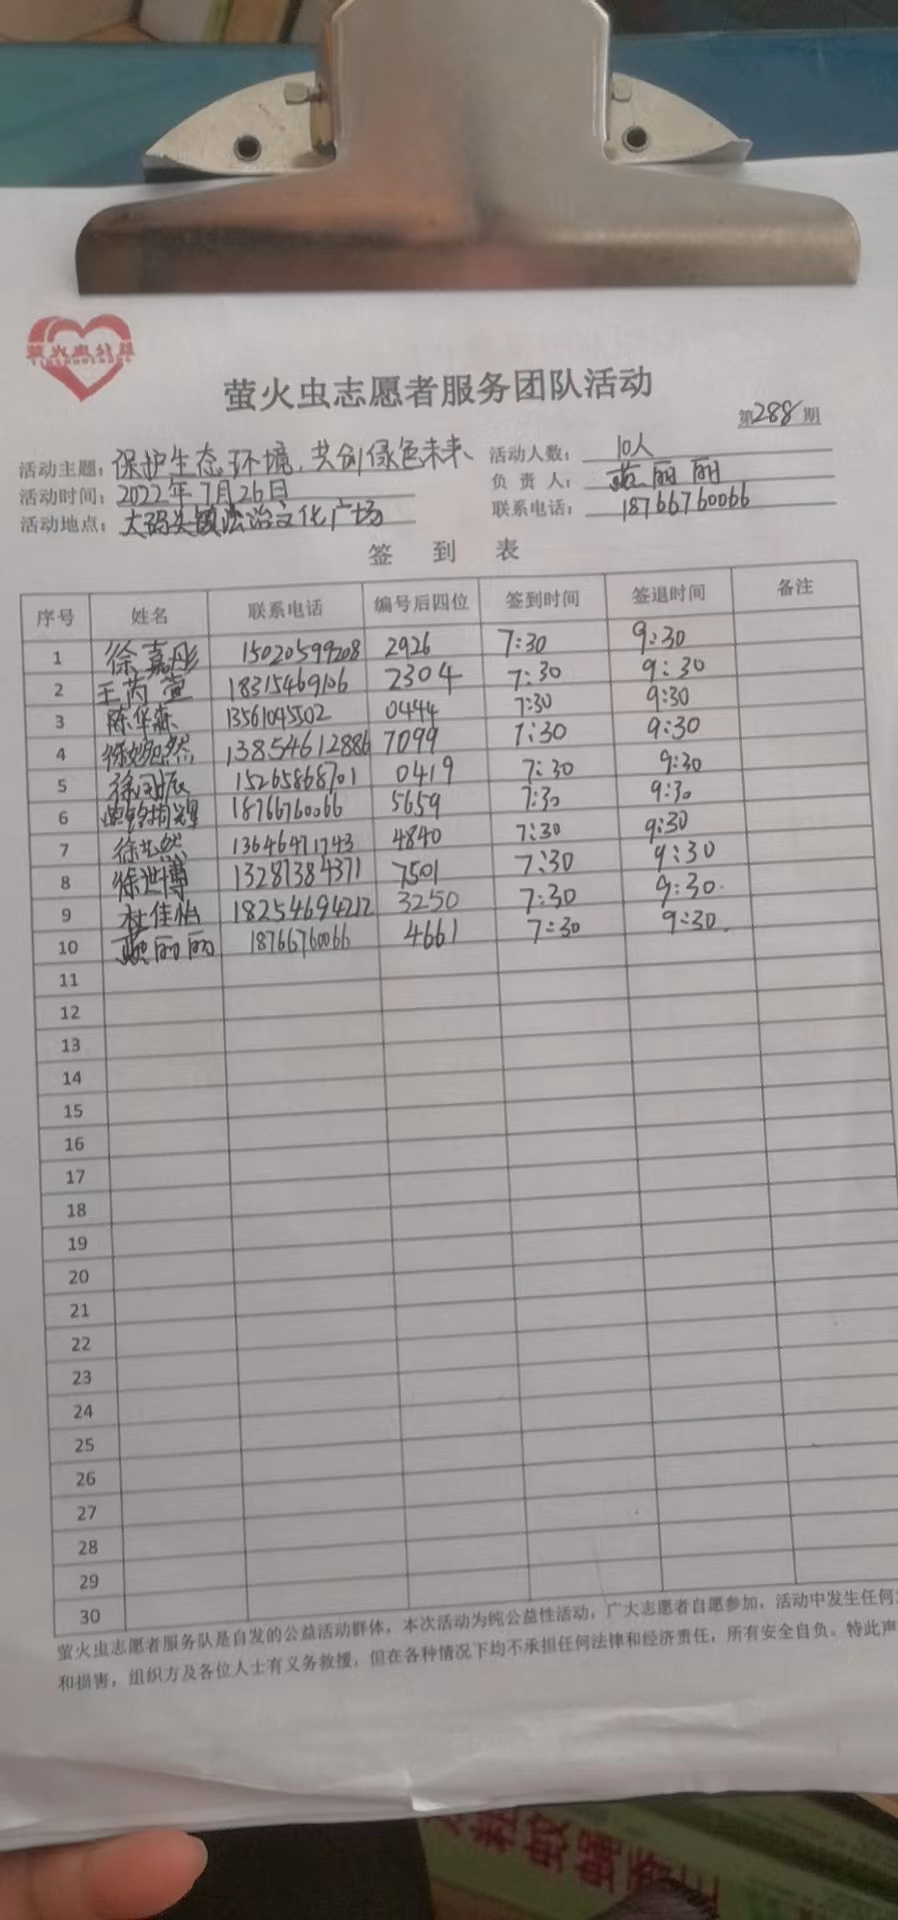 萤火虫公益
萤火虫志愿者服务团队活动
第288期
活动主题：保护生态环境，共创绿色未来 活动人数：10人
活动时间：2022年7月26日 负 责 人：丽丽
活动地点：大码头镇法治文化广场 联系电话：18766760066
签 到 表
序号 姓名 联系电话 编号后四位 签到时间 签退时间 备注
1 徐嘉彤 15020599208 2926 7:30 9:30
2 王芮萱 18315469106 2304 7:30 9:30
3 陈华森 13561095502 0444 7:30 9:30
4 徐然 13854612886 7099 7:30 9:30
5 徐 15265868701 0419 7:30 9:30
6 18766760066 5659 7:30 9:30
7 徐然 13646471743 4840 7:30 9:30
8 徐世博 13287384371 7501 7:30 9:30
9 杜佳怡 18254694212 3250 7:30 9:30
10 丽丽 18766760066 4661 7:30 9:30
11
12
13
14
15
16
17
18
19
20
21
22
23
24
25
26
27
28
29
30
萤火虫志愿者服务队是自发的公益活动群体，本次活动为纯公益性活动，广大志愿者自愿参加，活动中发生任何
和损害，组织方及各位人士有义务救援，但在各种情况下均不承担任何法律和经济责任，所有安全自负。特此声